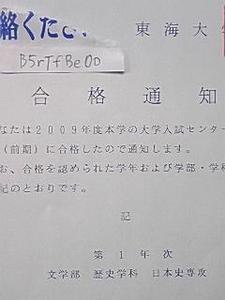 絡くださ
東海大
B5rTfBeOO
合格通知
なたは2009年度本学の大学入試センター
(前期)に合格したので通知します。
お、合格を認められた学年および学部・学科
記のとおりです。
記
第1年次
文学部 歴史学科 日本史専攻